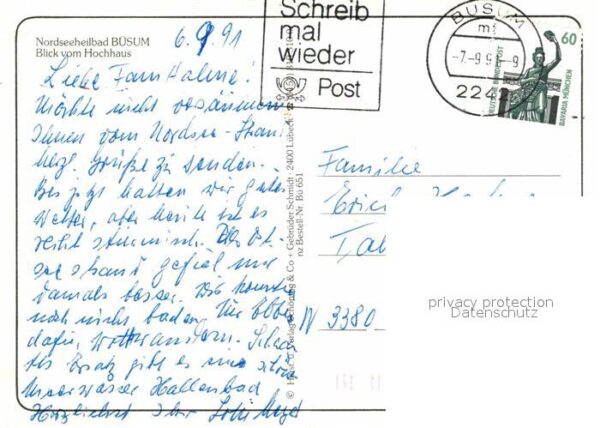 Nordseeheilbad BÜSUM
Blick vom Hochhaus
6.9.91
Liebe Fam.
Möchte nicht versäumen
Ihnen vom Nordsee-Strand
herzl. Grüße zu senden.
Bis jetzt hatten wir gutes
Wetter, aber heute ist es
recht stürmisch. Der Ost-
seestrand gefiel mir
damals besser.
noch nicht baden. Nur Ebbe
dafür wattwandern.
Als Ersatz gibt es eine schöne
Meerwasser Hallenbad
Herzlichst Ihre
Schreib
mal
wieder
Post
BÜSUM
-7.-9.9
2242
60
DEUTSCHE BUNDESPOST
BAVARIA MÜNCHEN
Familie
W 3380
© Schöning & Co + Gebrüder Schmidt · 2400 Lübeck
Bestell-Nr. Bü 651
privacy protection
Datenschutz